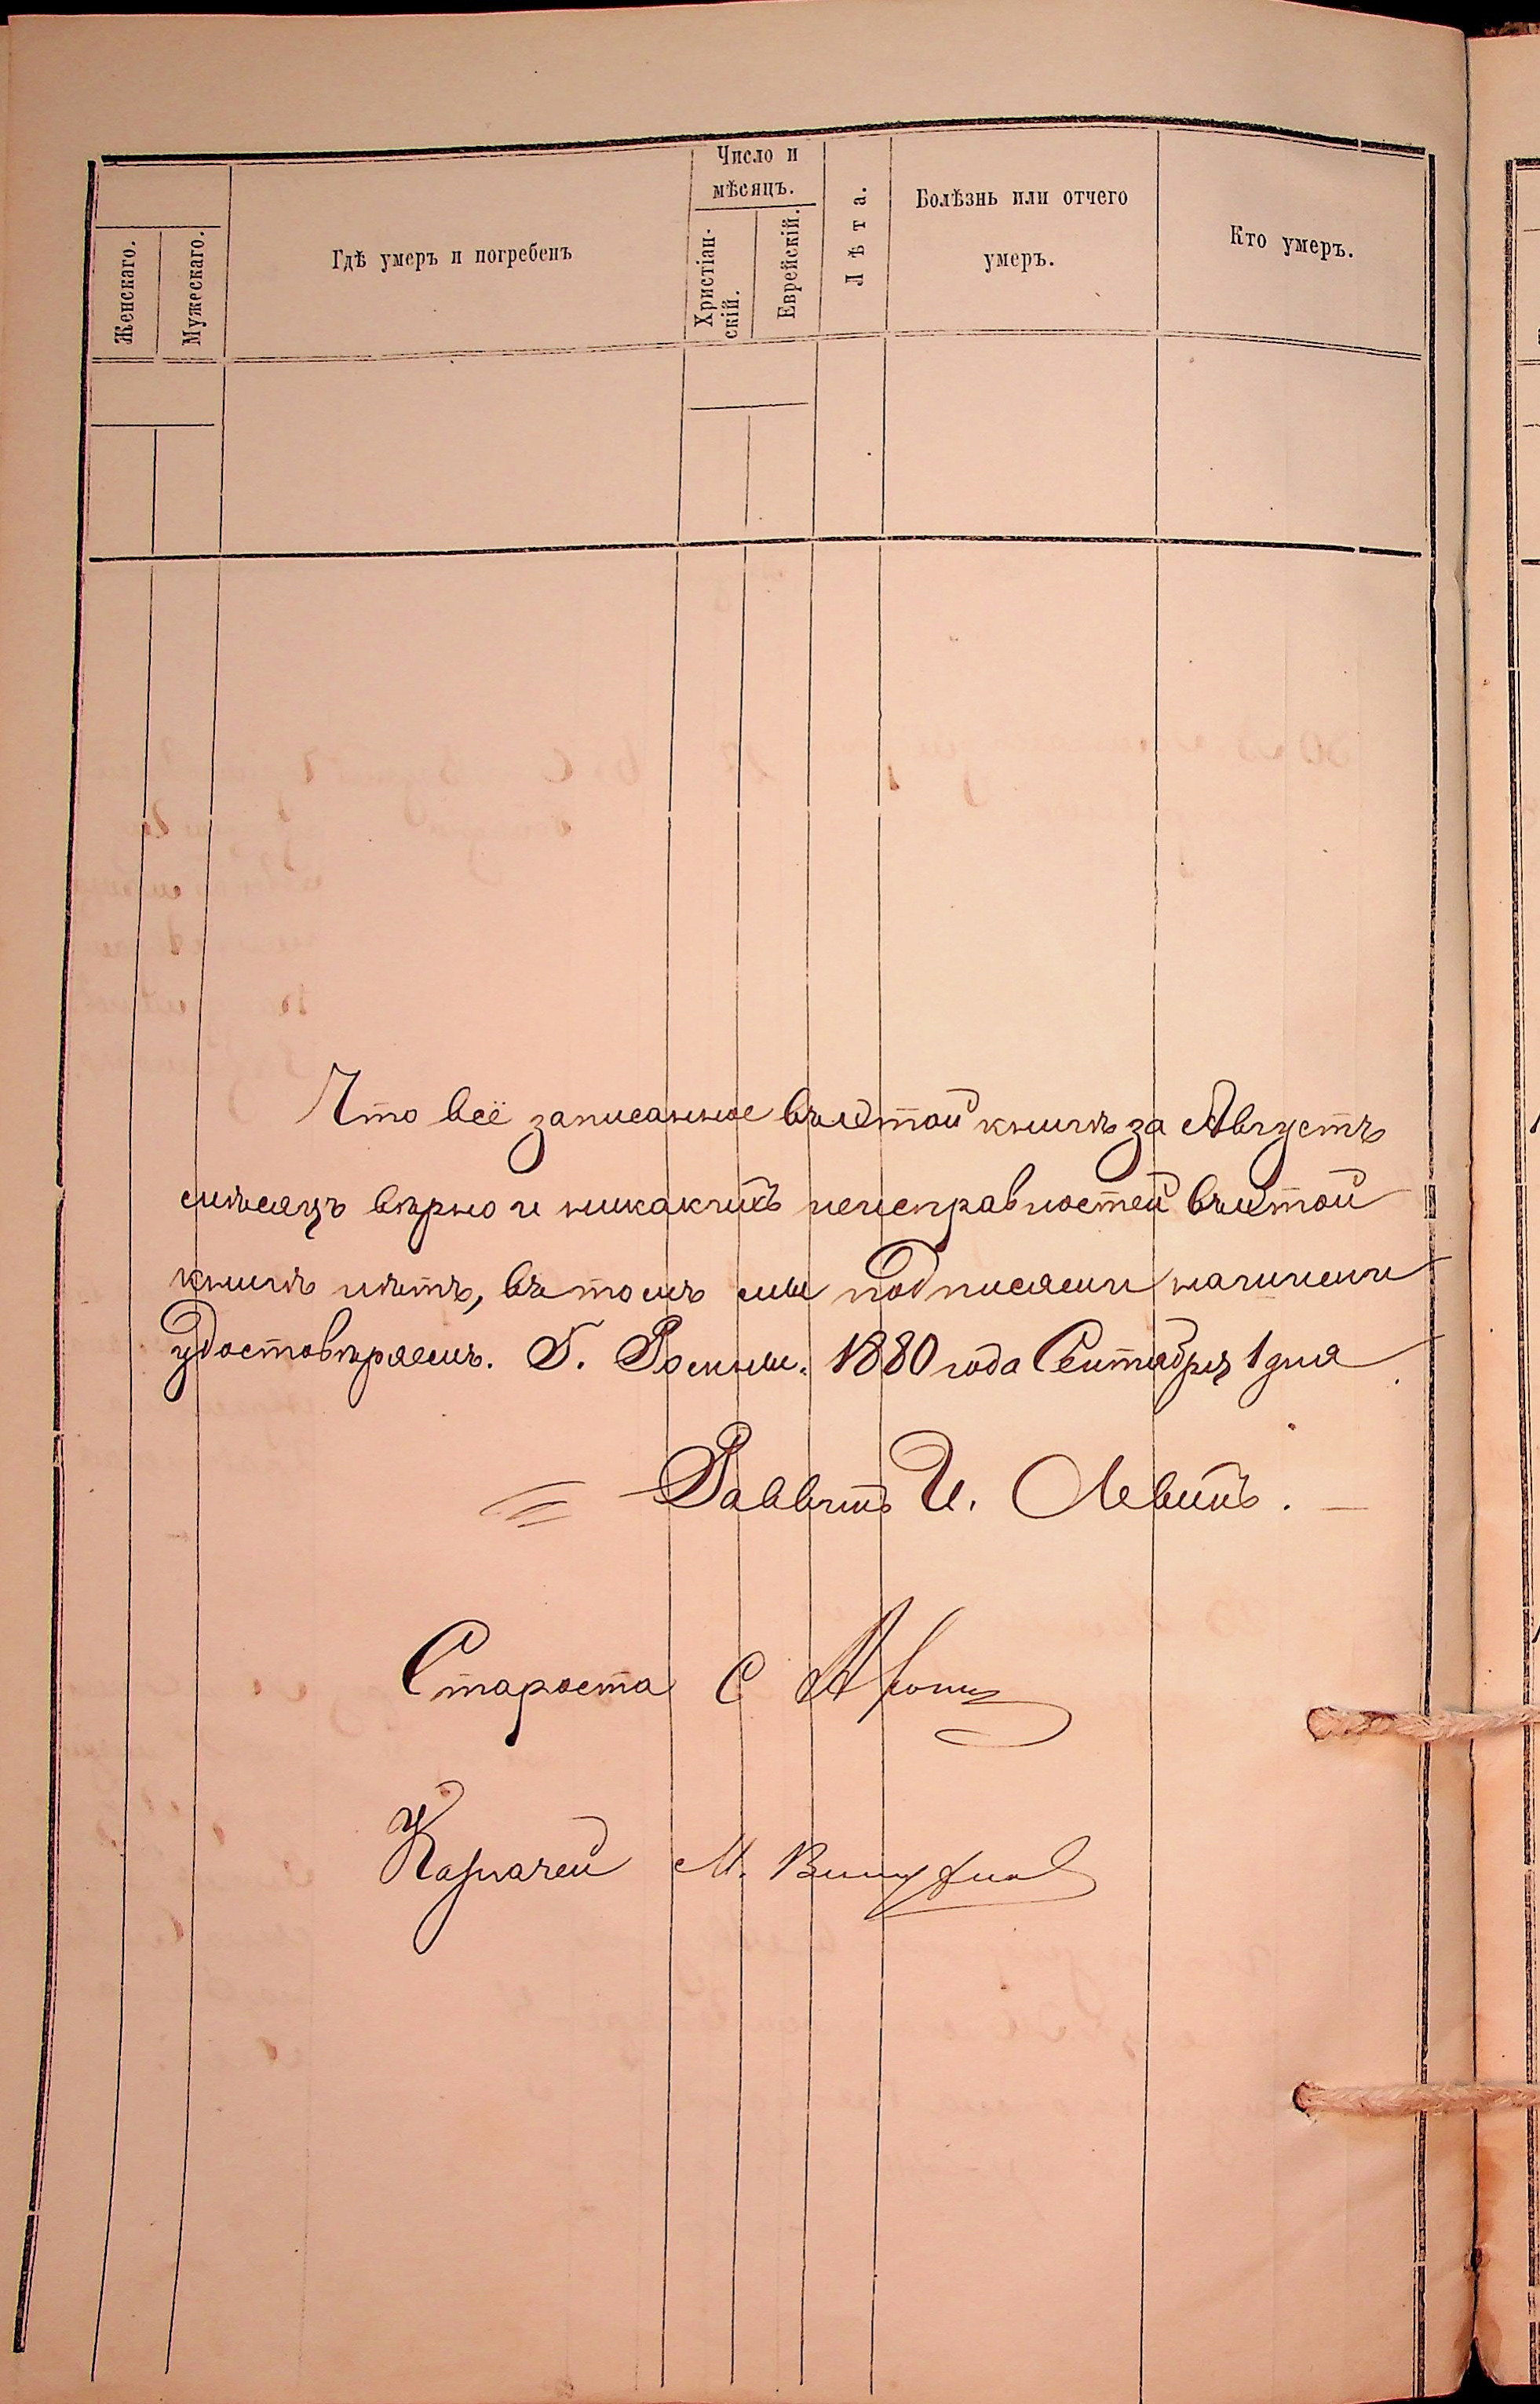 Женскаго.
Мужескаго.
Гдѣ умеръ и погребенъ
Число и
мѣсяцъ.
Христіан-
скій.
Еврейскій.
Лѣта.
Болѣзнь или отчего
умеръ.
Кто умеръ.
Что всё записанное въ этой книгѣ за Августъ
мѣсяцъ вѣрно и никакихъ неисправностей въ этой
книгѣ нѣтъ, въ томъ мы подписями нашими
удостовѣряемъ. Г. Ромны. 1880 года Сентября 1 дня
Раввинъ И. Левинъ.
Староста С
Казначей М.